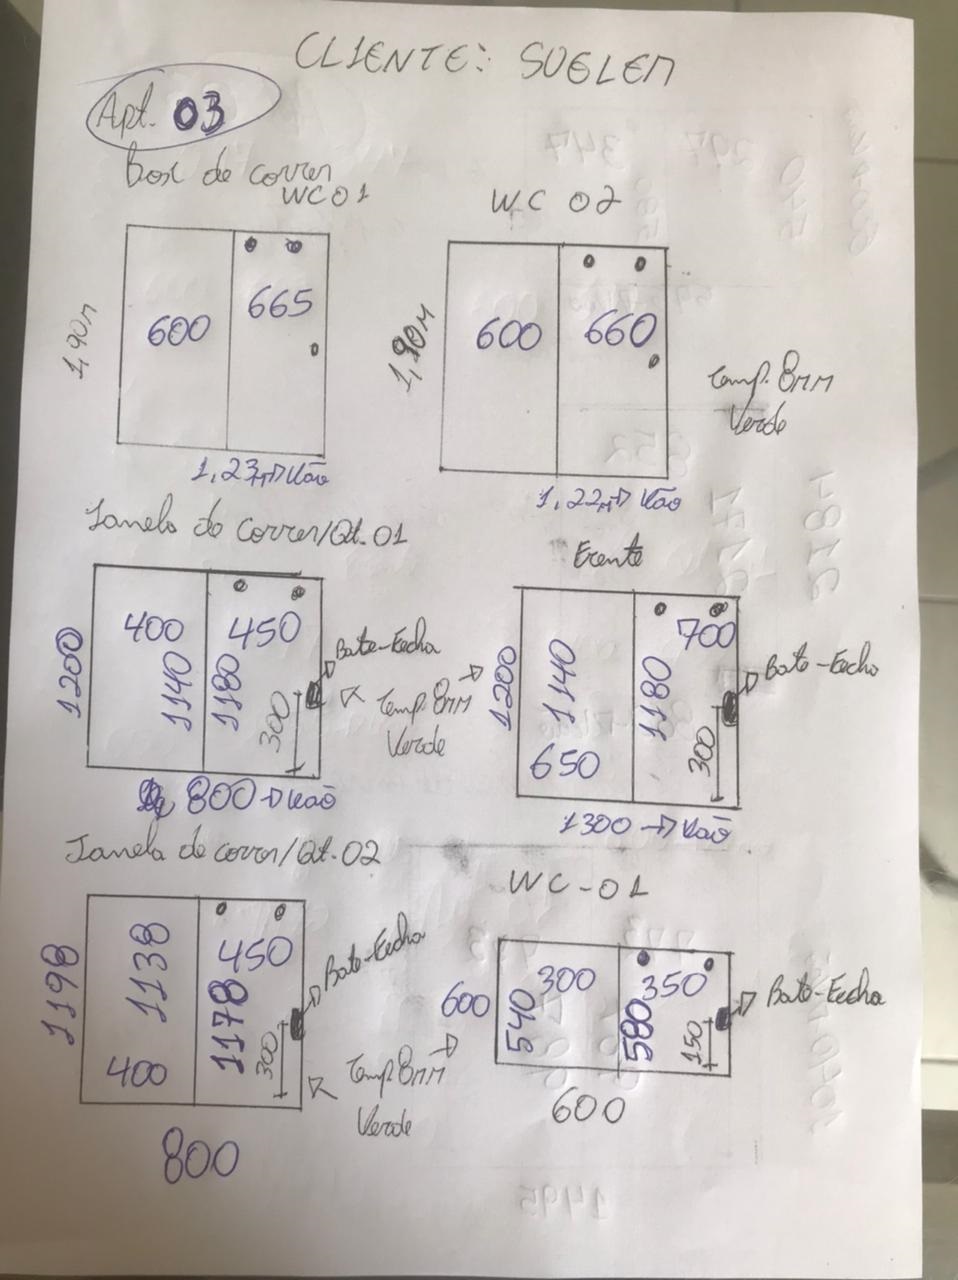 CLIENTE: SUELEM
Apt. 03
Box de correr
WC01
WC 02
1,90m
600
665
1,90M
600
660
Temp. 8mm
Verde
1,23m→Vão
1,22m→Vão
Janela de Correr/Qt.01
Frente
1200
400
1140
450
1180
300
Bate-Fecha
Temp. 8mm
Verde
1200
1140
650
700
1180
300
Bate-Fecho
800→Vão
1300→Vão
Janela de correr/Qt.02
WC-01
1198
1138
400
450
1178
300
Bate-Fecha
Temp 8mm
Verde
600
540
300
350
580
150
Bate-Fecha
800
600